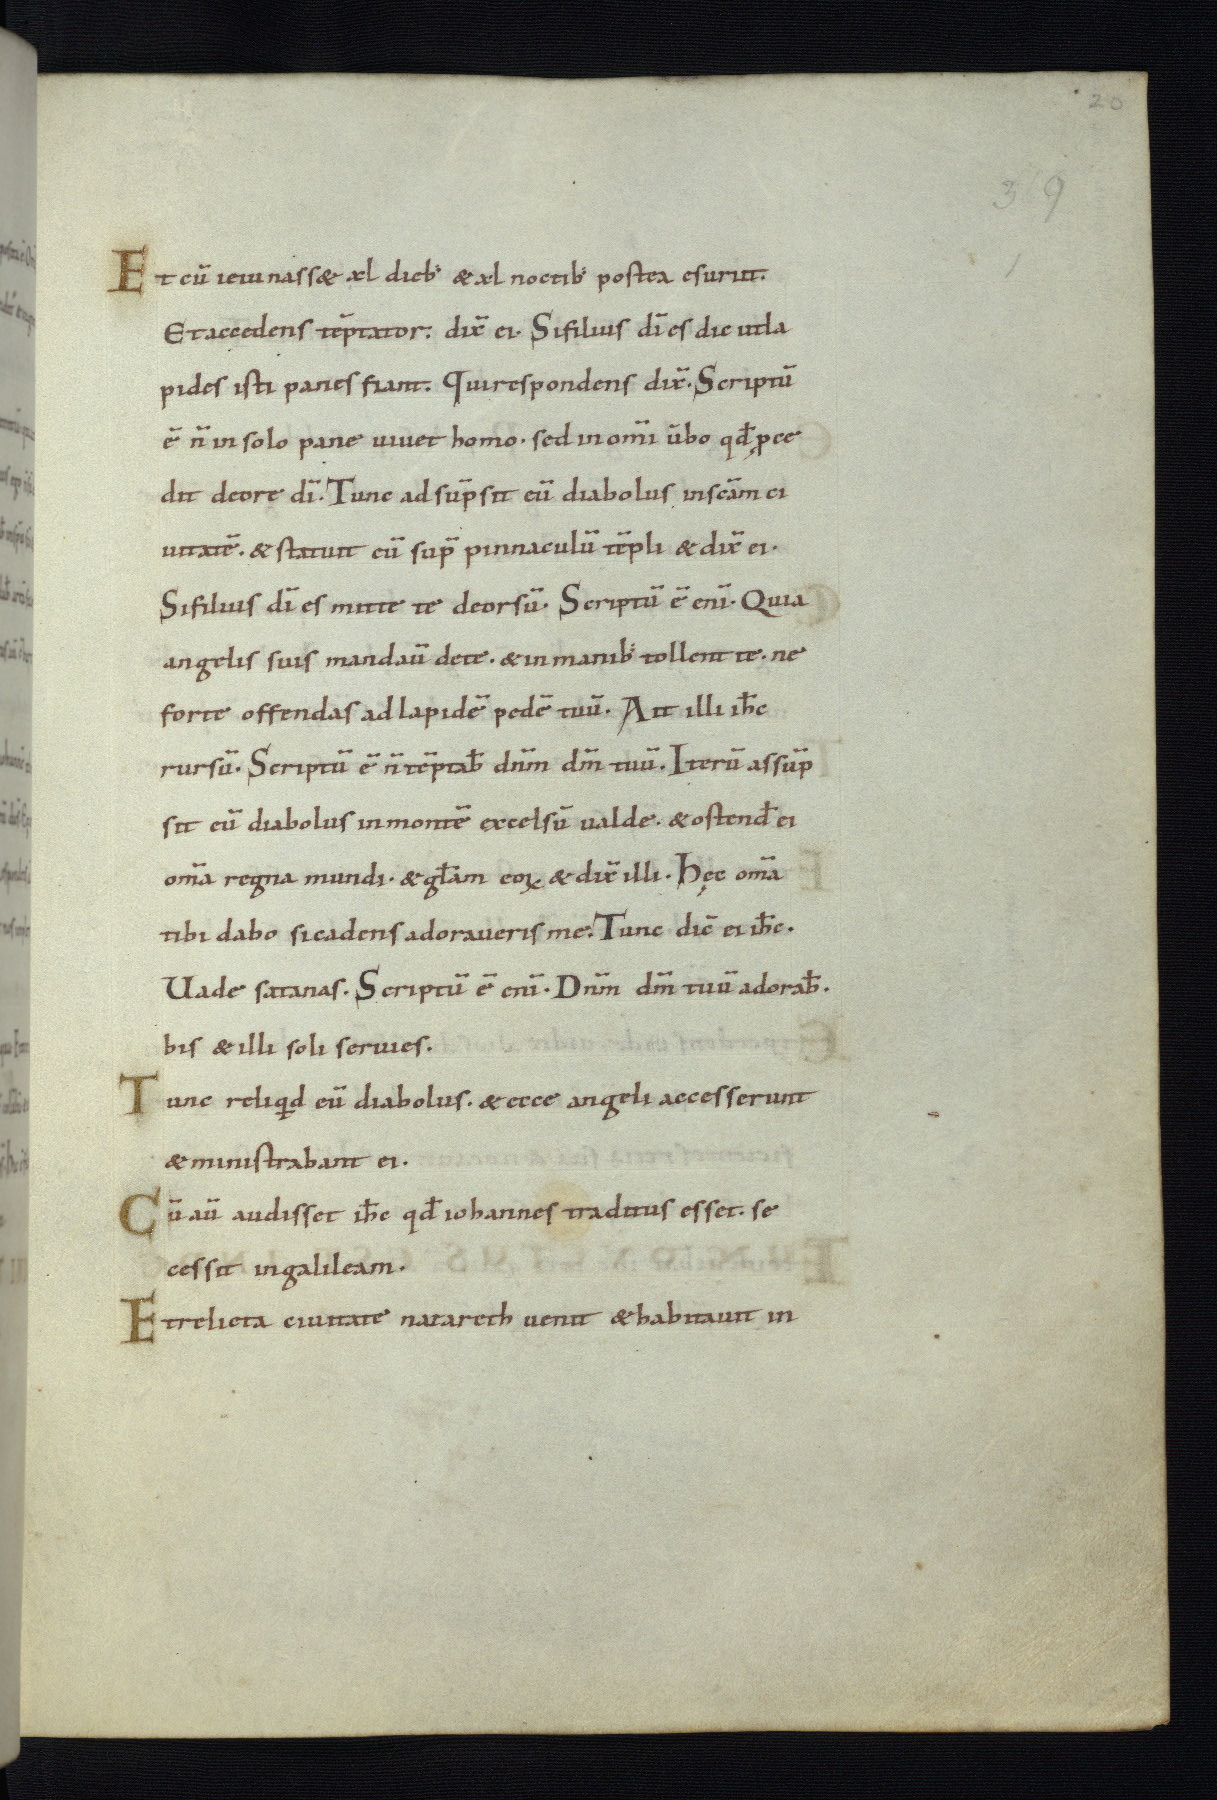 20
39
Et cū ieiunass& xl dieb; & xl noctib; postea esuriit.
Et accedens tēptator. dix̄ ei. Si filius dī es dic ut la
pides isti panes fiant. Qui respondens dix̄. Scriptū
ē n̄ in solo pane uiuet homo. sed in om̄i ūbo qđ ꝓce
dit de ore dī. Tunc adsūpsit eū diabolus in sc̄am ci
uitatē. & statuit eū sup̄ pinnaculū tēpli & dix̄ ei.
Si filius dī es mitte te deorsū. Scriptū ē eni̅. Quia
angelis suis mandaū de te. & in manib; tollent te. ne
forte offendas ad lapidē pedē tuū. Ait illi ih̄c
rursū. Scriptū ē n̄ tēptab̄ dn̄m dm̄ tuū. Iterū assūp
sit eū diabolus in montē excelsū ualde. & ostend̄ ei
om̄a regna mundi. & gl̄am eoꝝ & dix̄ illi. Hęc om̄a
tibi dabo si cadens adoraueris me. Tunc dic̄ ei ih̄c.
Uade satanas. Scriptū ē eni̅. Dn̄m dm̄ tuū adorab̄.
bis & illi soli seruies.
Tunc reliqid eū diabolus. & ecce angeli accesserunt
& ministrabant ei.
Cū aū audisset ih̄c qđ iohannes traditus esset. se
cessit in galileam.
Et relicta ciuitate nazareth uenit & habitauit in